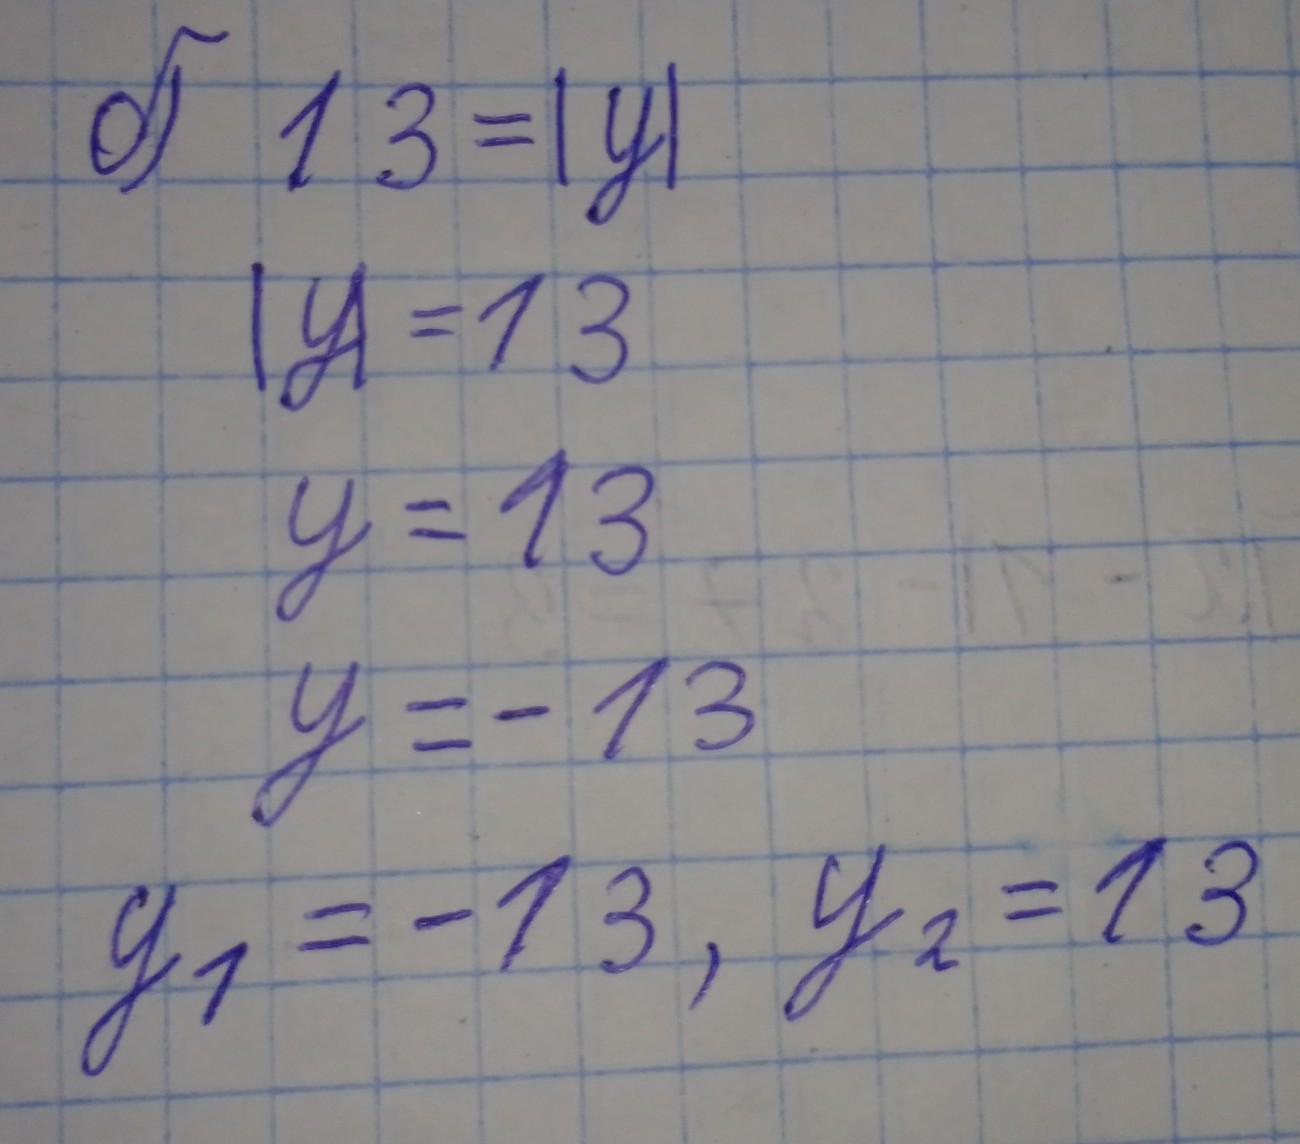 б) 13=|y|
|y|=13
y=13
y=-13
y₁=-13, y₂=13